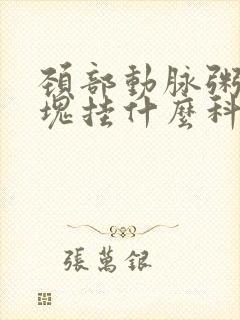 頸部動脉粥
塊挂什麼科
張萬銀